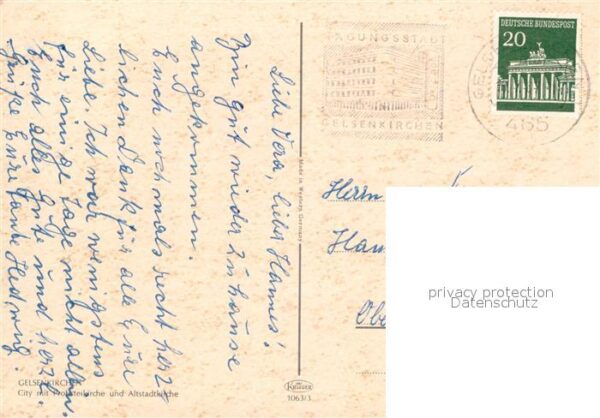 Liebe Vera, lieber Hannes!
Bin gut wieder zuhause
angekommen.
Euch nochmals recht herz
lichen Dank für alle Eure
Liebe. Ich war wenigstens
für einige Tage nicht allein.
Euch alles Gute und herzl.
Grüße Eure Tante Hedwig.
TAGUNGSSTADT
GELSENKIRCHEN
DEUTSCHE BUNDESPOST
20
GELS
465
Herrn
Han
Obe
Made in Western Germany
privacy protection
Datenschutz
GELSENKIRCHEN
City mit Propsteikirche und Altstadtkirche
Krüger
1063/3